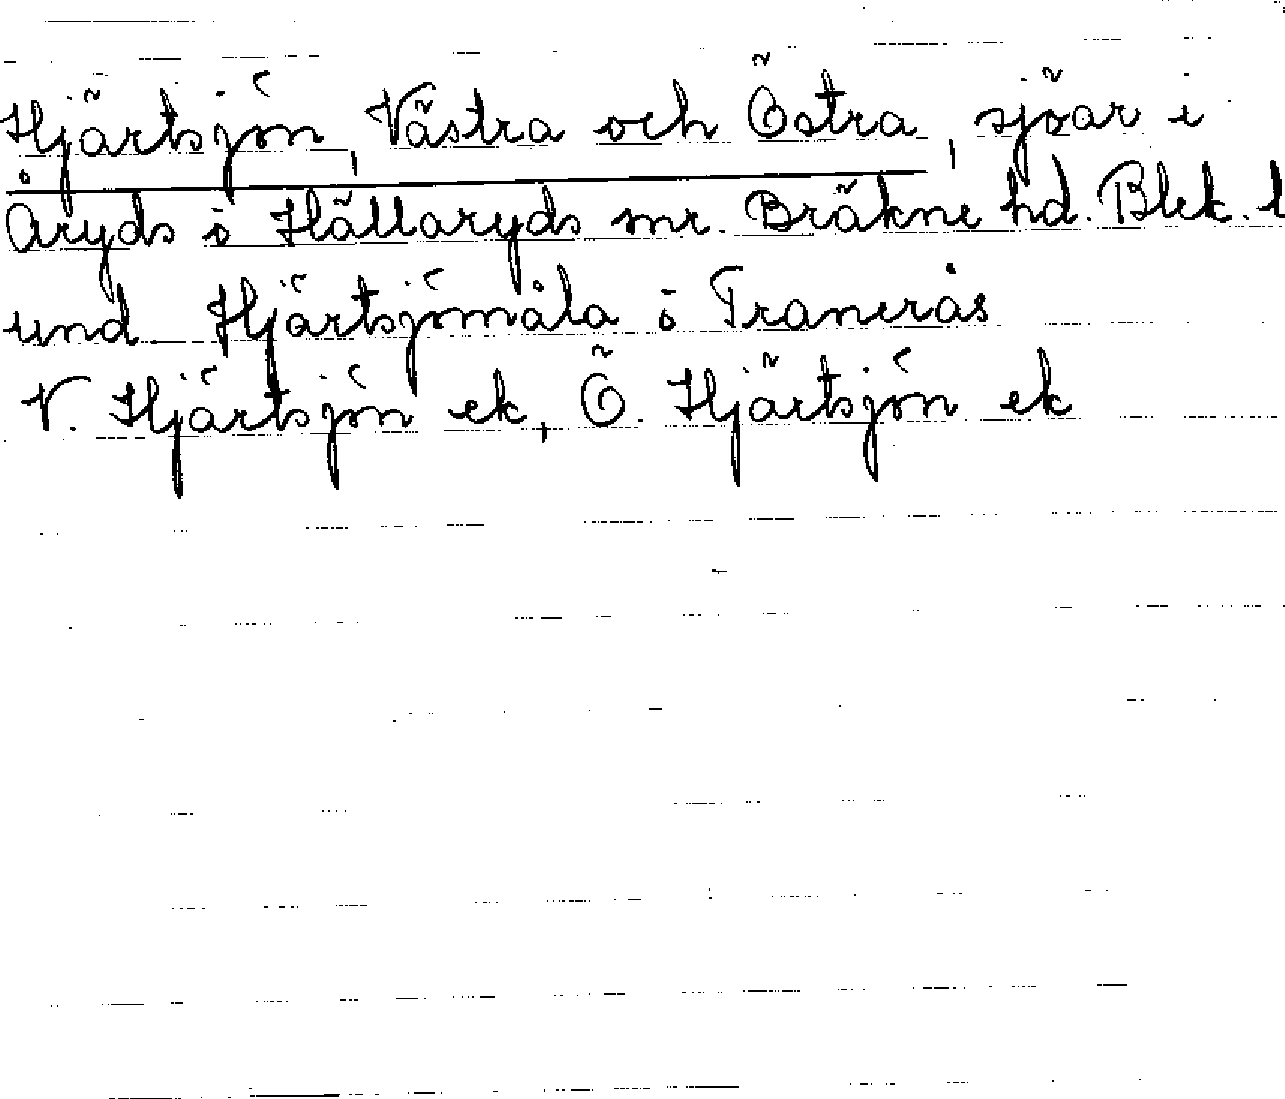 Hjärtsjön, Västra och Östra, sjöar i
Åryds o Hällaryds snr. Bräkne hd. Blek. l
und. Hjärtsjömåla o Tranerås
V. Hjärtsjön ek, Ö. Hjärtsjön ek